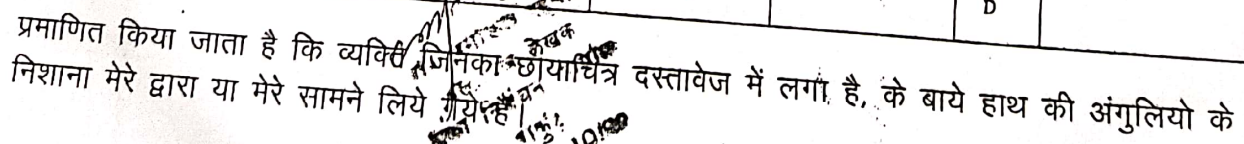 D
प्रमाणित किया जाता है कि व्यक्ति जिनका छायाचित्र दस्तावेज में लगा है, के बाये हाथ की अंगुलियो के
लेखक
निशाना मेरे द्वारा या मेरे सामने लिये गये है।